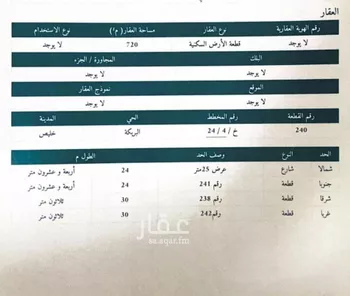 العقار
رقم الهوية العقارية نوع العقار مساحة العقار( م²) نوع الاستخدام
لا يوجد قطعة الأرض السكنية 720 لا يوجد
البنك المجاورة / الجزء
لا يوجد لا يوجد
الموقع نموذج العقار
لا يوجد لا يوجد
رقم القطعة رقم المخطط الحي المدينة
240 خ / 4 / 24 البريكة خليص
الحد النوع وصف الحد الطول م
شمالا شارع عرض 25متر 24 أربعة و عشرون متر
جنوبا قطعة رقم 241 24 أربعة و عشرون متر
شرقا قطعة رقم 238 30 ثلاثون متر
غربا قطعة رقم242 30 ثلاثون متر
عقار
sa.aqar.fm